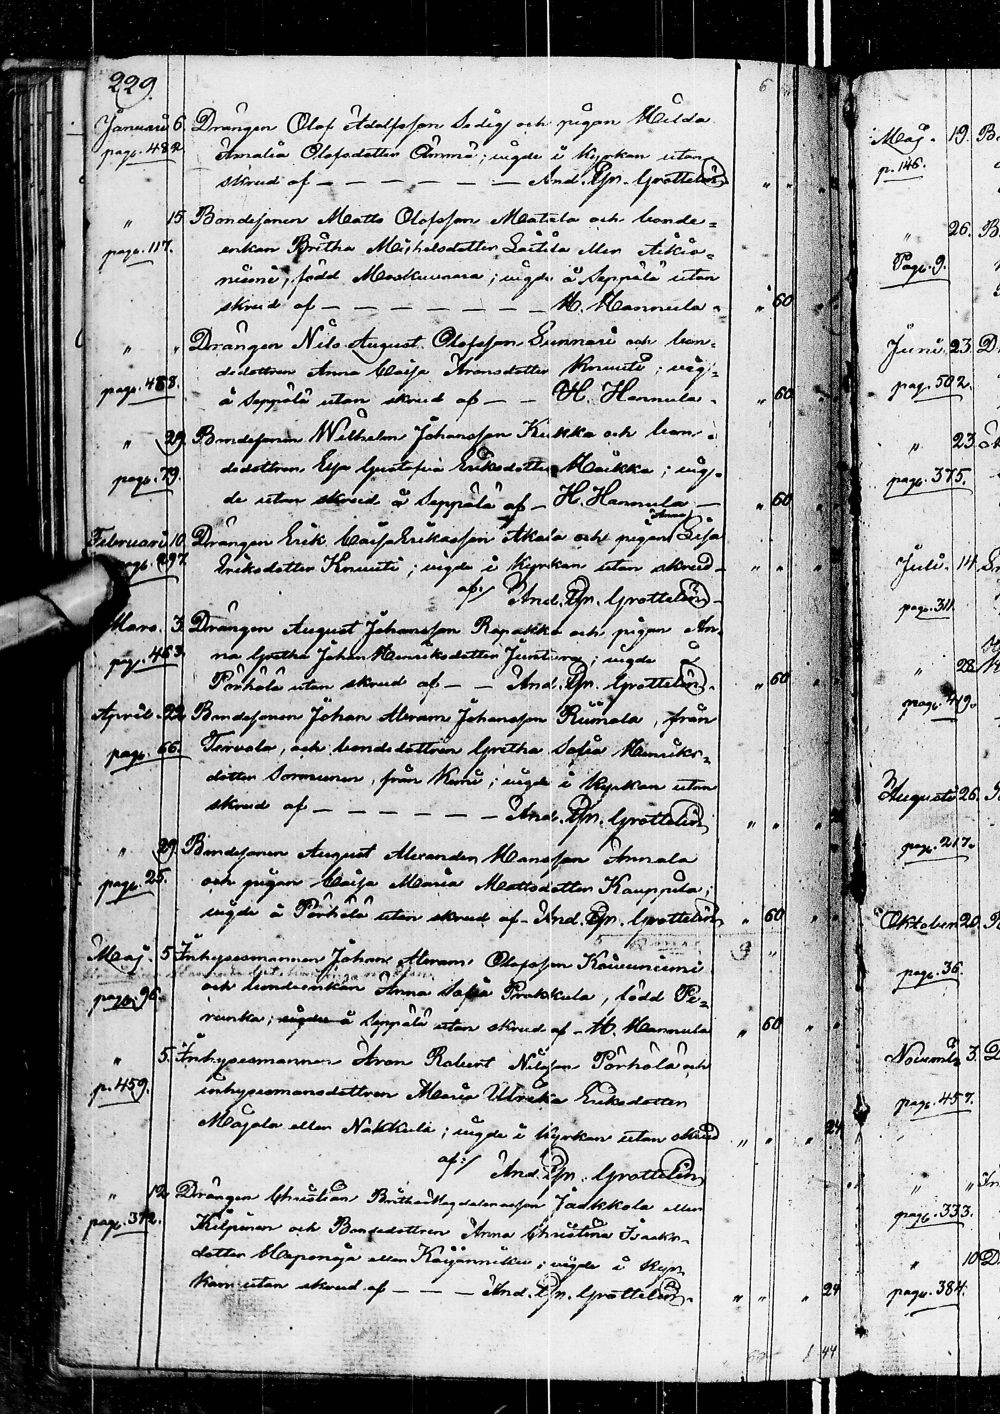 229.
Januari 6. Drängen Olof Adolfsson Sedig och pigan Hilda
pag. 482. Amalia Olofsdotter Ämmä; vigde i kyrkan utan
skrud af — — — — — And. Joh. Grottelin
" 15. Bondesonen Matts Olofsson Matala och bonde-
pag. 117. enkan Britha Michelsdotter eller Äkiä-
niemi, född Maskuvaara; vigde å Seppälä utan
skrud af — — — — — — H. Hannula. " 60
" " Drängen Nils August Olofsson Sunnari och bon-
pag. 488. dedottren Anna Caisa Aronsdotter Knuuti; vig-
å Seppälä utan skrud af — — H. Hannula. " 60
" 29. Bondesonen Wilhelm Johansson Kukko och bon-
pag. 79. dedottren Elsa Gustafva Eriksdotter Maikko; vig-
de utan skrud å Seppälä af — H. Hannula — " 60
Februari 10. Drängen Erik CaisaEriksson Akola och pigan Anna Lisa
pag. 297. Eriksdotter Knuuti; vigde i kyrkan utan skrud " "
af:/ And. Joh. Grottelin
Mars. 3. Drängen August Johansson Rapakko och pigan An-
pag. 463. na Gretha Johan Henriksdotter Juntura; vigde å
Pörhölä utan skrud af — — And. Joh. Grottelin. " 60
April. 22. Bondesonen Johan Abram Johansson Riimala, från
pag. 66. Tervola, och bondedottren Gretha Sofia Henriks-
dotter Sormunen, från Kemi; vigde i kyrkan utan
skrud af — — — — — — And. Joh. Grottelin " "
" 29. Bondesonen August Alexander Hansson Annala
pag. 25. och pigan Caisa Maria Mattsdotter Kauppila;
vigde å Pörhölä utan skrud af — And. Joh. Grottelin " 60
Maj. 5. Inhysesmannen Johan Abram Olofsson Kaivuniemi
pag. 96. och bondeenkan Anna Sofia Prokkola, född Pe-
runka; vigde å Seppälä utan skrud af — H. Hannula " 60
" 5. Inhysesmannen Aron Robert Nilsson Pörhölä och
p. 459. inhysesmansdottren Maria Ulrika Eriksdotter
Majala eller Nakkula; vigde i kyrkan utan skrud " " " 24
af:/ And. Joh. Grottelin
" 12. Drängen Christian BrithaMagdalenasson Jaakkola eller
pag. 372. Kilpinen och Bondedottren Anna Christina Isaks-
dotter Haponoja eller Käijänmikko; vigde i kyr-
kan utan skrud af — — — And. Joh. Grottelin. " " " 24
44
Maj. 19. B
p. 146.
" 26. B
Pag. 9.
Juni. 23. D
pag. 502.
" 23.
pag. 375.
Juli. 14.
pag. 311.
" 28.
pag. 419.
Augusti 26.
pag. 217.
Oktober 20.
pag. 36.
November 3. D
pag. 457.
" "
pag. 333.
" 10 D
pag. 384.